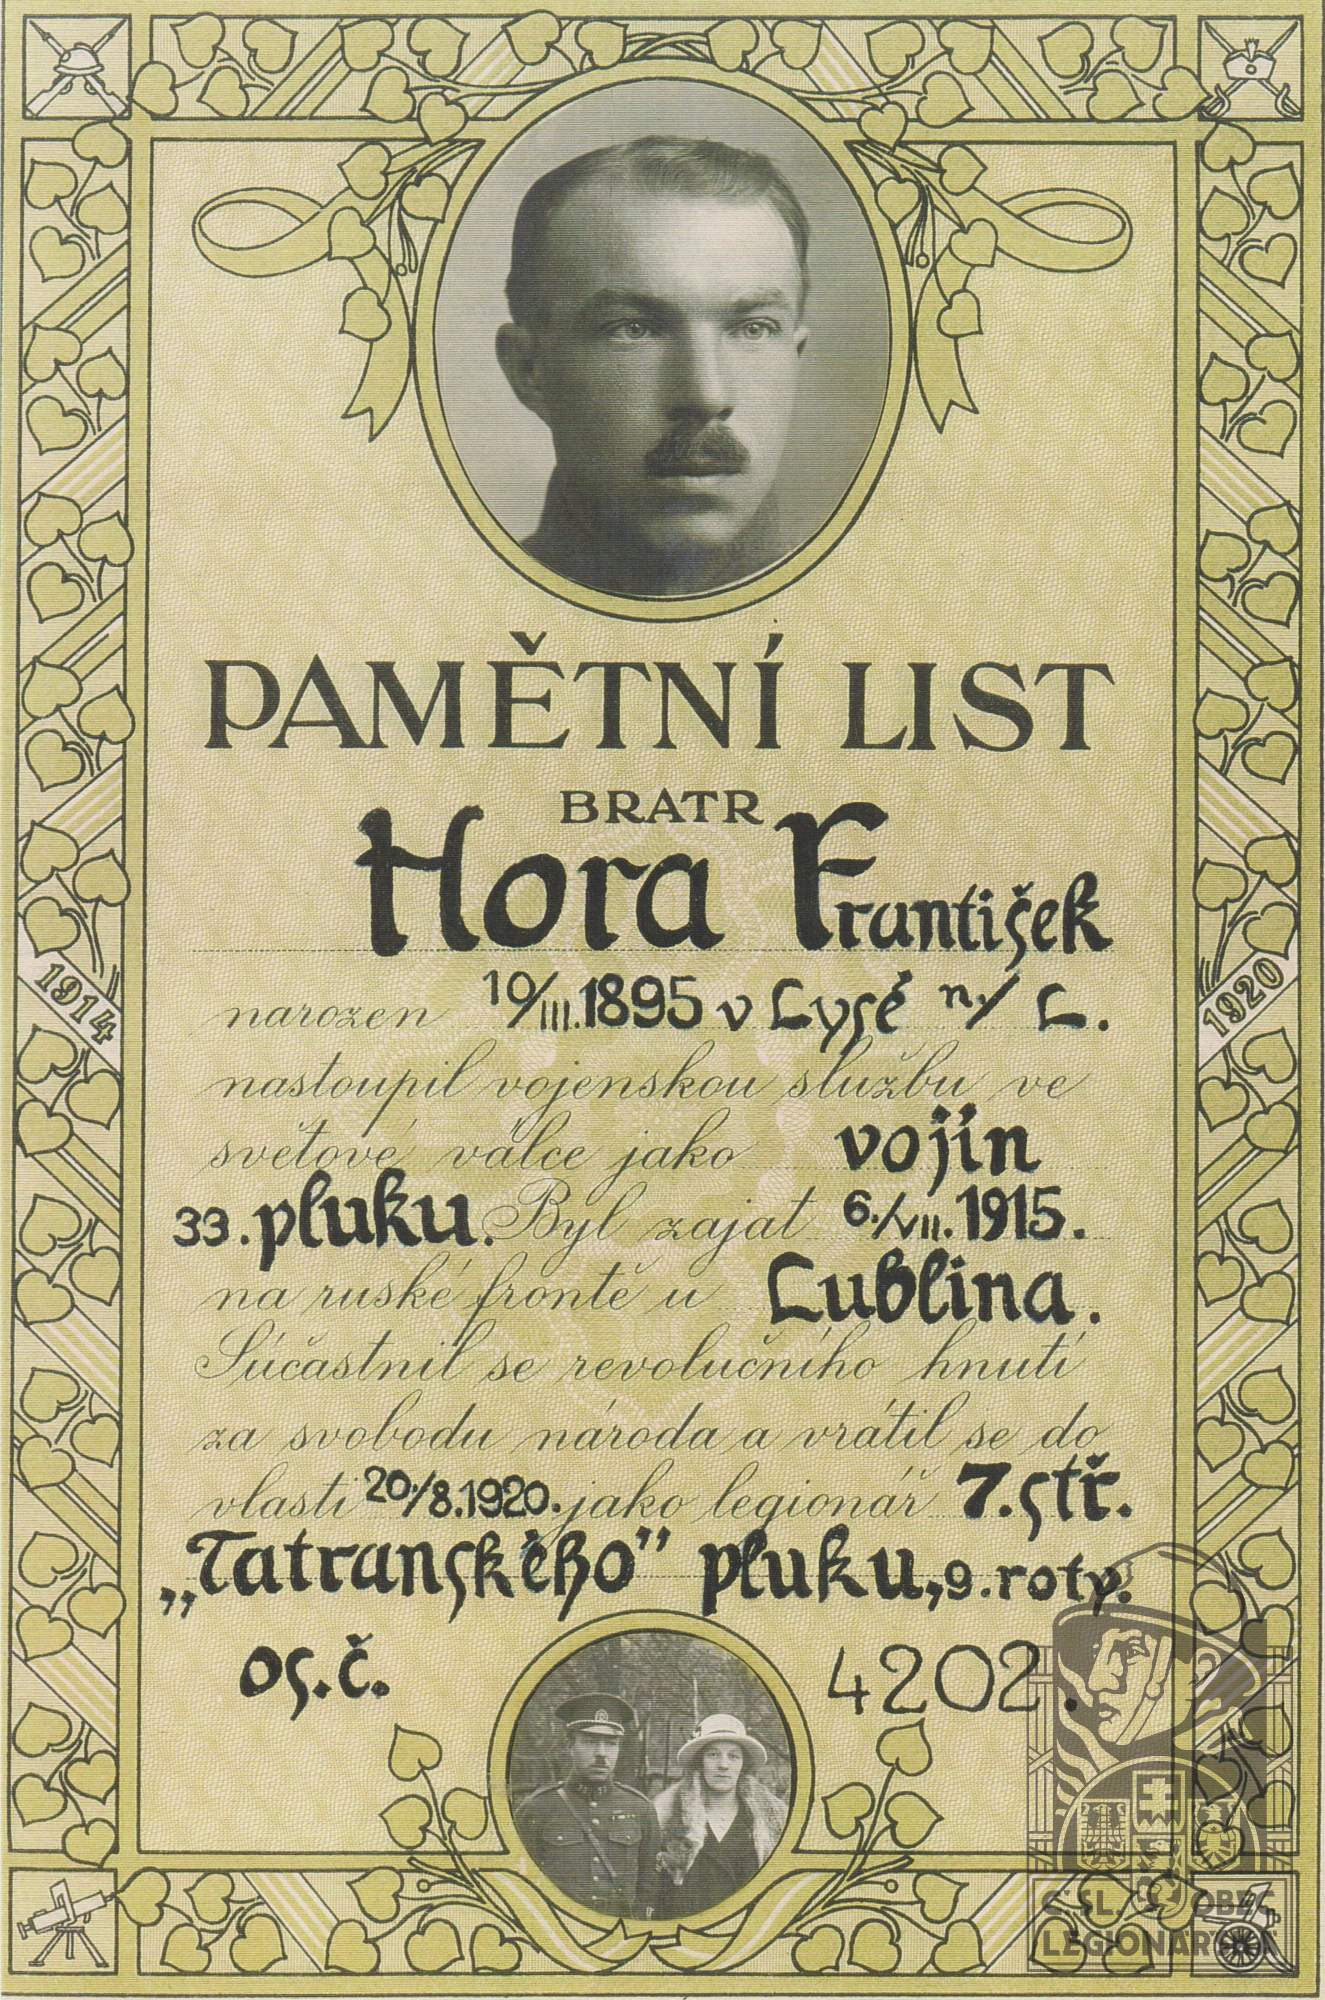 PAMĚTNÍ LIST
BRATR
Hora František
narozen 10/III. 1895 v Lysé n./L.
nastoupil vojenskou službu ve
světové válce jako vojín
33. pluku. Byl zajat 6./VII. 1915.
na ruské frontě u Lublina.
Súčastnil se revolučního hnutí
za svobodu národa a vrátil se do
vlasti 20./8.1920. jako legionář 7. stř.
„Tatranského” pluku, 9. roty.
os. č. 4202.
1914
1920
Č.SL. OBEC
LEGIONÁŘSKÁ